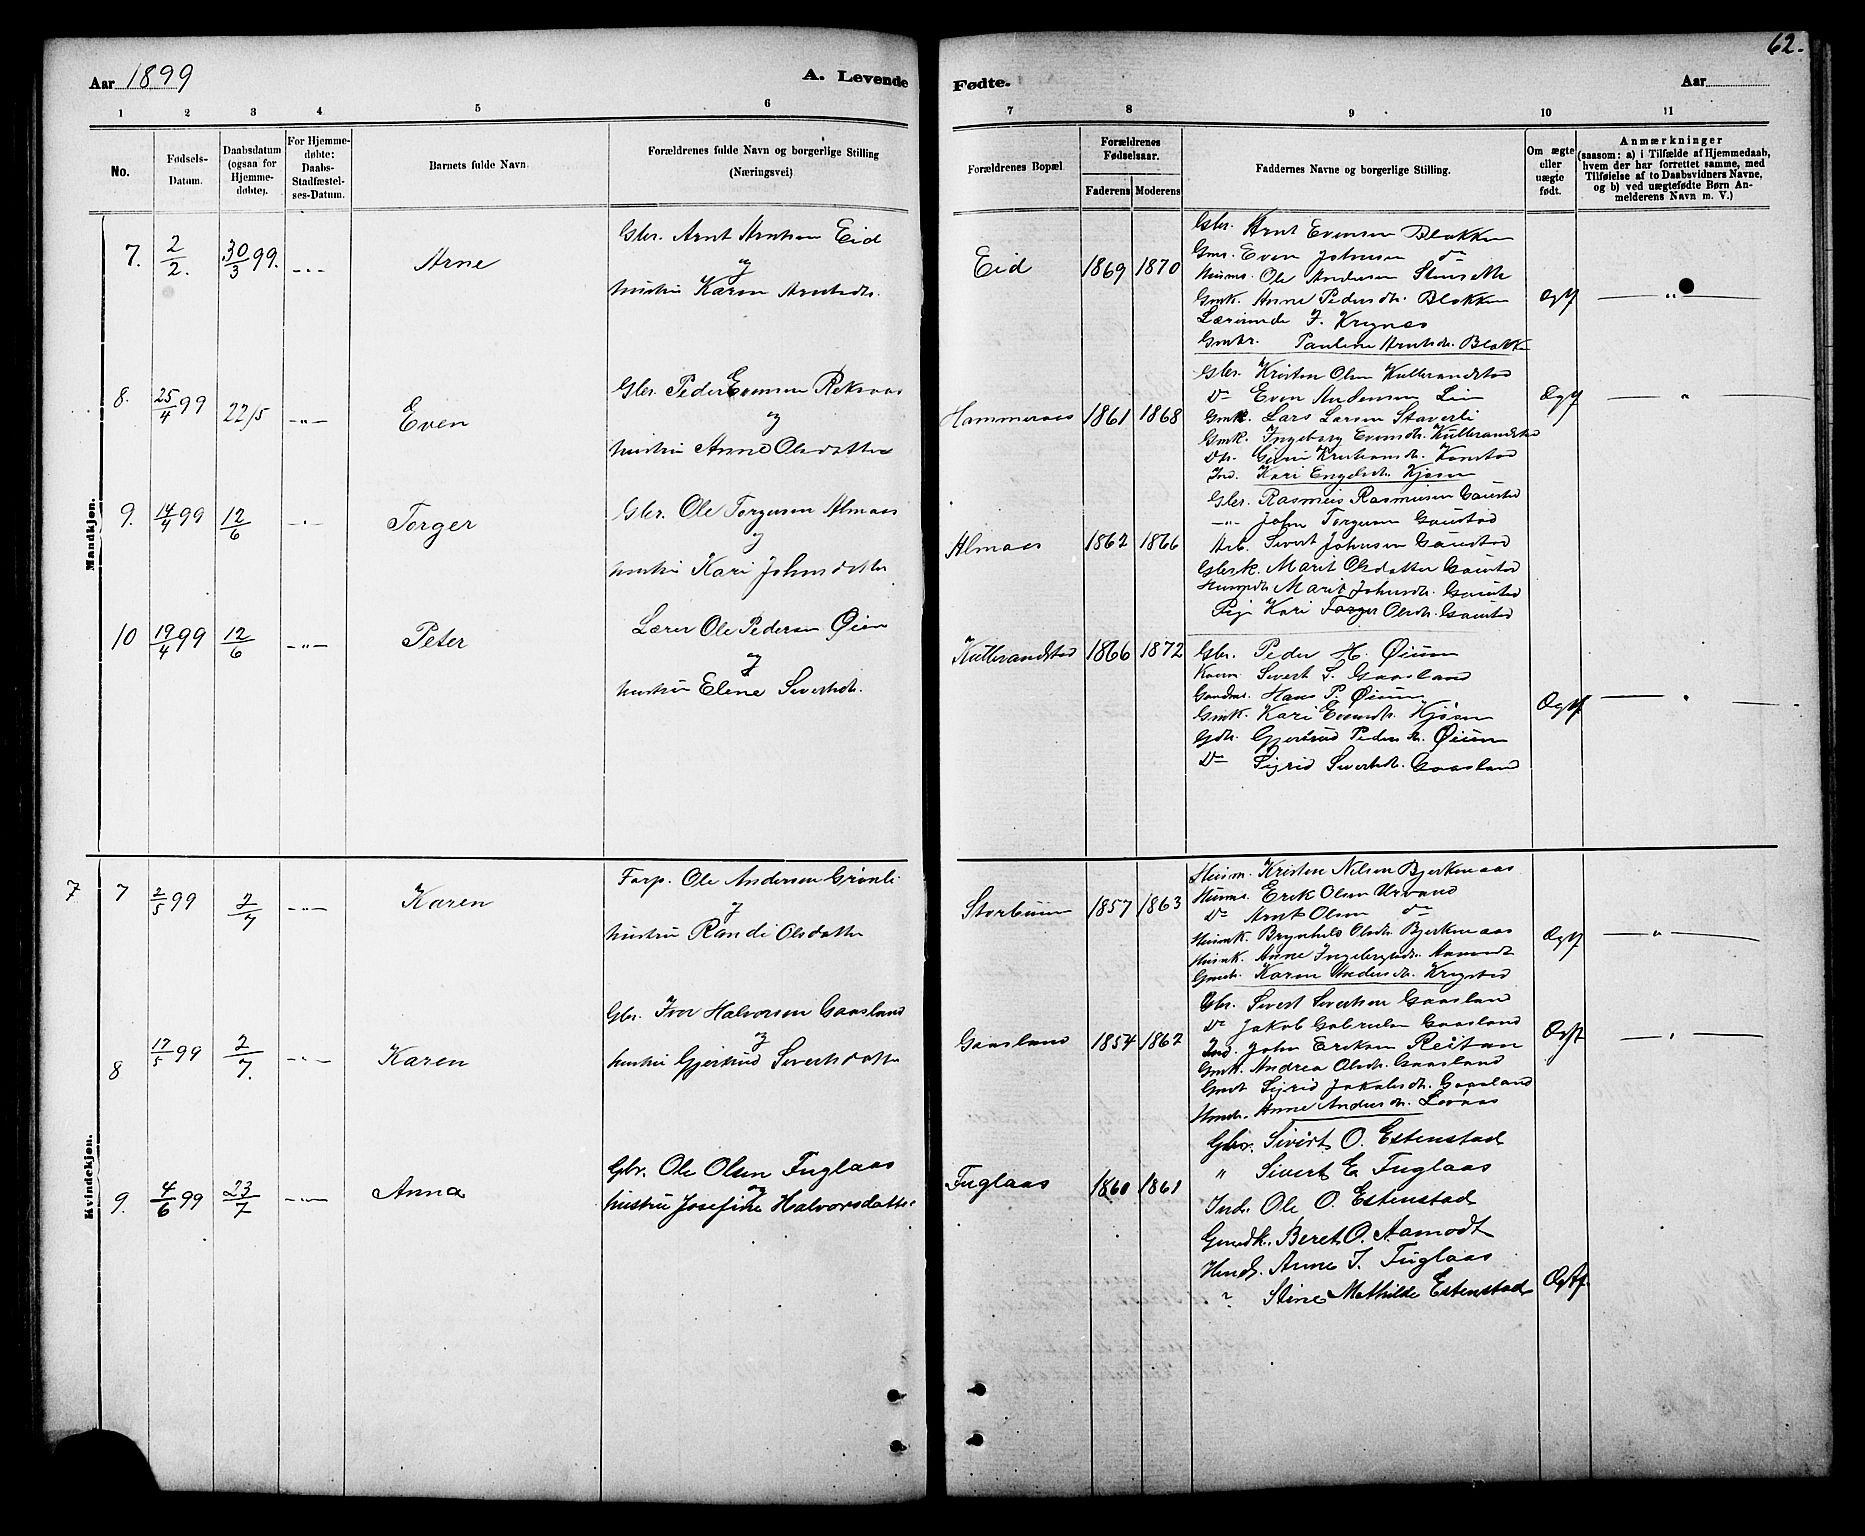 62.
Aar 1899
A. Levende
Fødte.
Aar
1 2 3 4 5 6
7 8 9 10 11
No.
Fødsels-Datum.
Daabsdatum (ogsaa for Hjemme-døbte).
For Hjemme-døbte: Daabs-Stadfæstel-ses-Datum.
Barnets fulde Navn
Forældrenes fulde Navn og borgerlige Stilling (Næringsvei)
Forældrenes Bopæl
Forældrenes Fødselsaar.
Faderens Moderens
Faddernes Navne og borgerlige Stilling.
Om ægte eller uægte født.
Anmærkninger
(saasom: a) i Tilfælde af Hjemmedaab, hvem der har forrettet samme, med Tilføielse af to Daabsvidners Navne, og b) ved uægtefødte Børn Anmelderens Navn m. V.)
Mandkjøn.
7. 2/2. 30/3 99. -"- Arne
Gbr. Arnt Arntsen Eid
og
hustru Karen Arntsdtr.
Eid 1869 1870
Gbr. Arnt Evensen Blokken
Gmd. Even Johnsen do
Husms. Ole Andersen
Gmk. Anne Pedersdr. Blokken
J. Krynes
Pauline Arntsdr. Blokk
Ægtf — " —
8. 25/4 99 22/5 -"- Even
Gbr. Peder Evensen
og
hustru Anne Olsdatter
Hammeraas 1861 1868
Gbr. Kristen Olsen Kulbrandstad
Do Even Andersen Lien
Gmk. Lars Larsen Staverli
Gmk. Ingeborg Evensdr. Kulbrandstad
Ind. Kari Engelsdr. Kjøsen
Ægtf — " —
9. 14/4 99 12/6 -"- Torger
Gbr. Ole Torgersen Almaas
og
hustru Kari Johnsdatter
Almaas 1862 1866
Gbr. Rasmus Rasmussen Gaustad
-"- John Torgersen Gaustad
Arb. Sivert Johnsen Gaustad
Gbrk. Marit Olsdatter Gaustad
Marit Johnsdr. Gaustad
Pige Kari Olsdr. Gaustad
10 19/4 99 12/6 -"- Peter
Lærer Ole Pedersen Øien
og
hustru Elene Sivertsdr.
Kulbrandstad 1866 1872
Gbr. Peder H. Øiun
Sivert S. Gaasland
Hans P. Øiun
Gmk. Kari Evensdr. Kjøsen
Gdr. Gjertrud Pedersdr. Øiun
Do Sigrid Sivertsdr. Gaasland
Ægtf — " —
Kvindekjøn.
7 7 2/5 99 2/7 -"- Karen
Forp. Ole Andersen Grønli
og
hustru Randi Olsdatter
1857 1863
Husm. Kristen Nilsen Bjerkenaas
Husms. Erik Olsen Urvand
Do Arnt Olsen do
Husmk. Brynhild Olsdr. Bjerkenaas
Husmk. Anne Aamodt
Karen Andersdr. Krogstad
Ægtf — " —
8 17/5 99 2/7. -"- Karen
Gbr. Iver Halvorsen Gaasland
og
hustru Gjertrud Sivertsdatter
Gaasland 1854 1862
Gbr. Sivert Sivertsen Gaasland
Do Jakob Gabrielsen Gaasland
Ind. John Eriksen Reitan
Gmk. Andrea Olsdr. Gaasland
Sigrid Jakobsdr. Gaasland
Anne Andersdr.
Ægtf — " —
9. 4/6 99 23/7 -"- Anna
Gbr. Ole Olsen Fuglaas
og
hustru Josefine Halvorsdatter
Fuglaas 1860 1861
Gbr. Sivert O. Estenstad
" Sivert E. Fuglaas
Ind. Ole O. Estenstad
Gmdk. Beret O. Aamodt
Anne J. Fuglaas
" Stine Mathilde Estenstad
Ægtf.